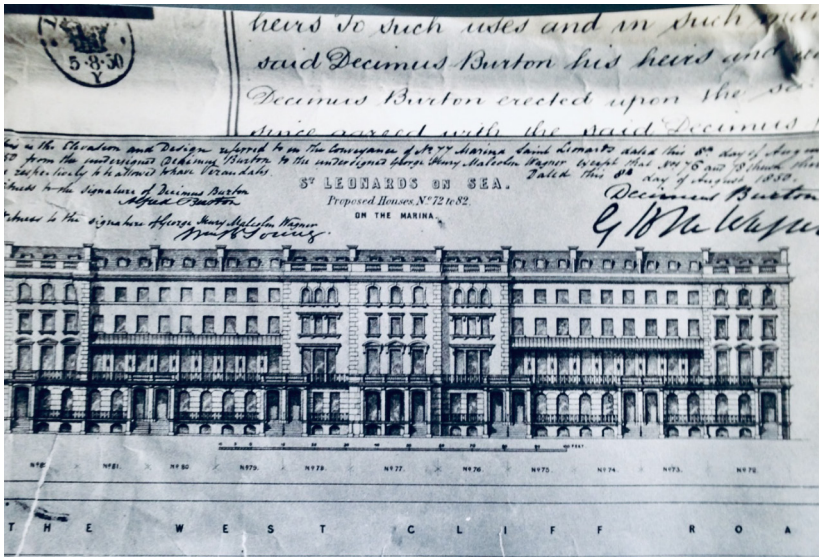 5·8·50
Y
heirs to such uses and in such
said Decimus Burton his heirs and
Decimus Burton erected upon the
since agreed with the said Decimus
is the Elevation and Design referred to in the Conveyance of No. 77 Marina Saint Leonards dated this 8th day of August
from the undersigned Decimus Burton to the undersigned George Henry Malcolm Wagner except that Nos 76 and 78
respectively to be allowed to have Verandahs. Dated this 8th day of August 1850.
to the signature of Decimus Burton
Alfred Burton
Decimus Burton
to the signature of George Henry Malcolm Wagner
G H M Wagner
ST LEONARDS ON SEA.
Proposed Houses, Nos 72 to 82.
ON THE MARINA.
FEET.
No 82. No 81. No 80 No 79. No 78. No 77. No 76. No 75. No 74. No 73. No 72.
THE WEST CLIFF ROA